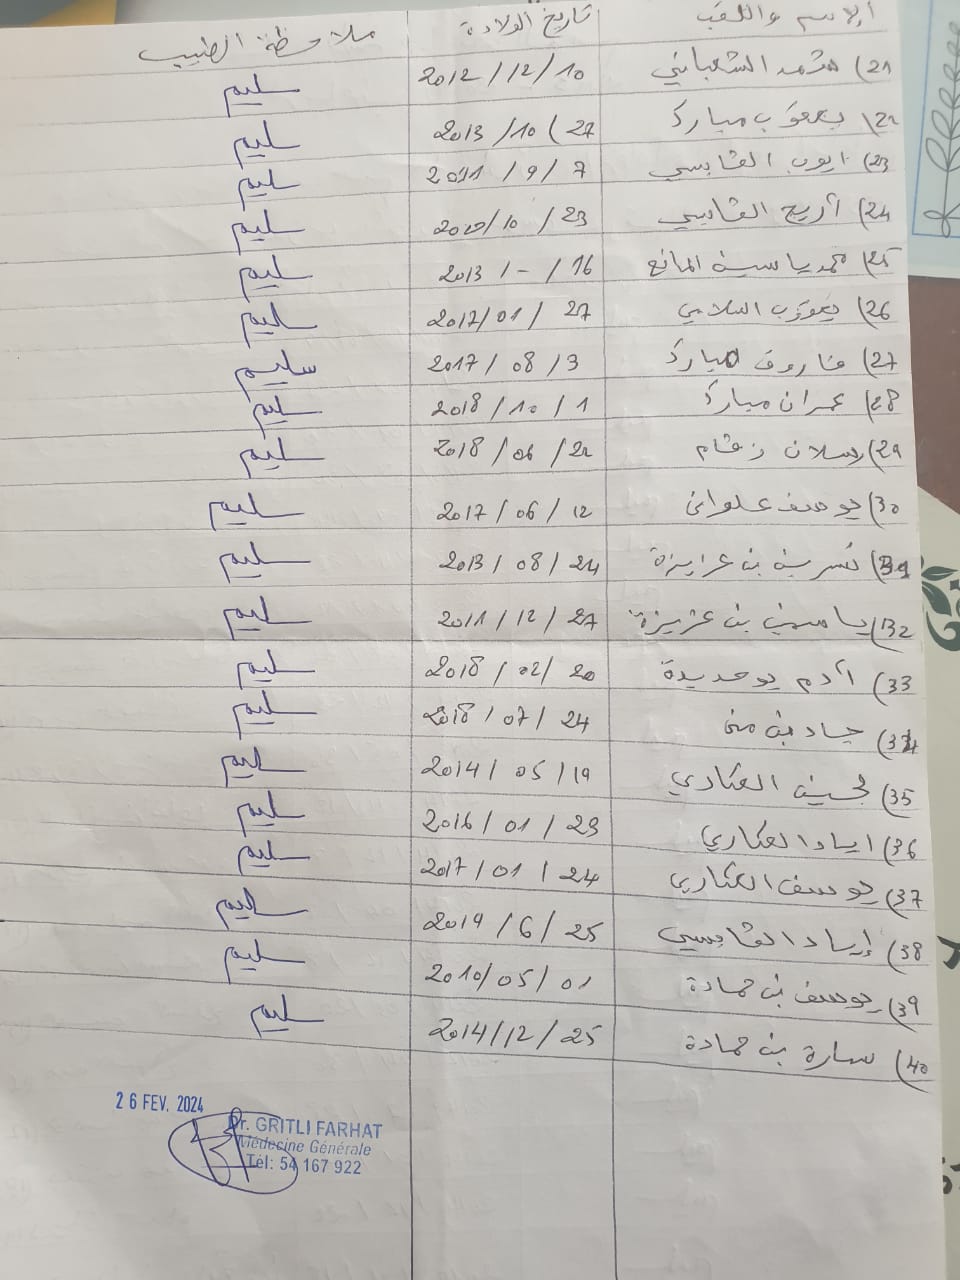 الاسم واللقب تاريخ الولادة ملاحظة الطبيب
21) محمد الشعباني 10/12/2012 سليم
22) يعقوب مبارك 27/10/2013 سليم
23) ايوب القابسي 7/9/2011 سليم
24) أريج القابسي 23/10/ سليم
25) محمد ياسين المانع 16/-/2013 سليم
26) يعقوب السلامي 27/01/2017 سليم
27) فاروق مبارك 3/08/2017 سليم
28) عمران مبارك 1/10/2018 سليم
29) رسلان زقام 22/06/2018 سليم
30) يوسف علواني 12/06/2017 سليم
31) نسرين بن عزيزة 24/08/2013 سليم
32) ياسمين بن عزيزة 27/12/2011 سليم
33) آدم بوحديدة 20/02/2018 سليم
34) جاد بن منى 24/07/2018 سليم
35) لجين العكاري 19/05/2014 سليم
36) اياد العكاري 23/01/2016 سليم
37) يوسف العكاري 24/01/2017 سليم
38) إياد القابسي 25/6/2019 سليم
39) يوسف بن حمادة 01/05/2010 سليم
40) سارة بن حمادة 25/12/2014 سليم
26 FEV. 2024
Dr. GRITLI FARHAT
Médecine Générale
Tél: 54 167 922